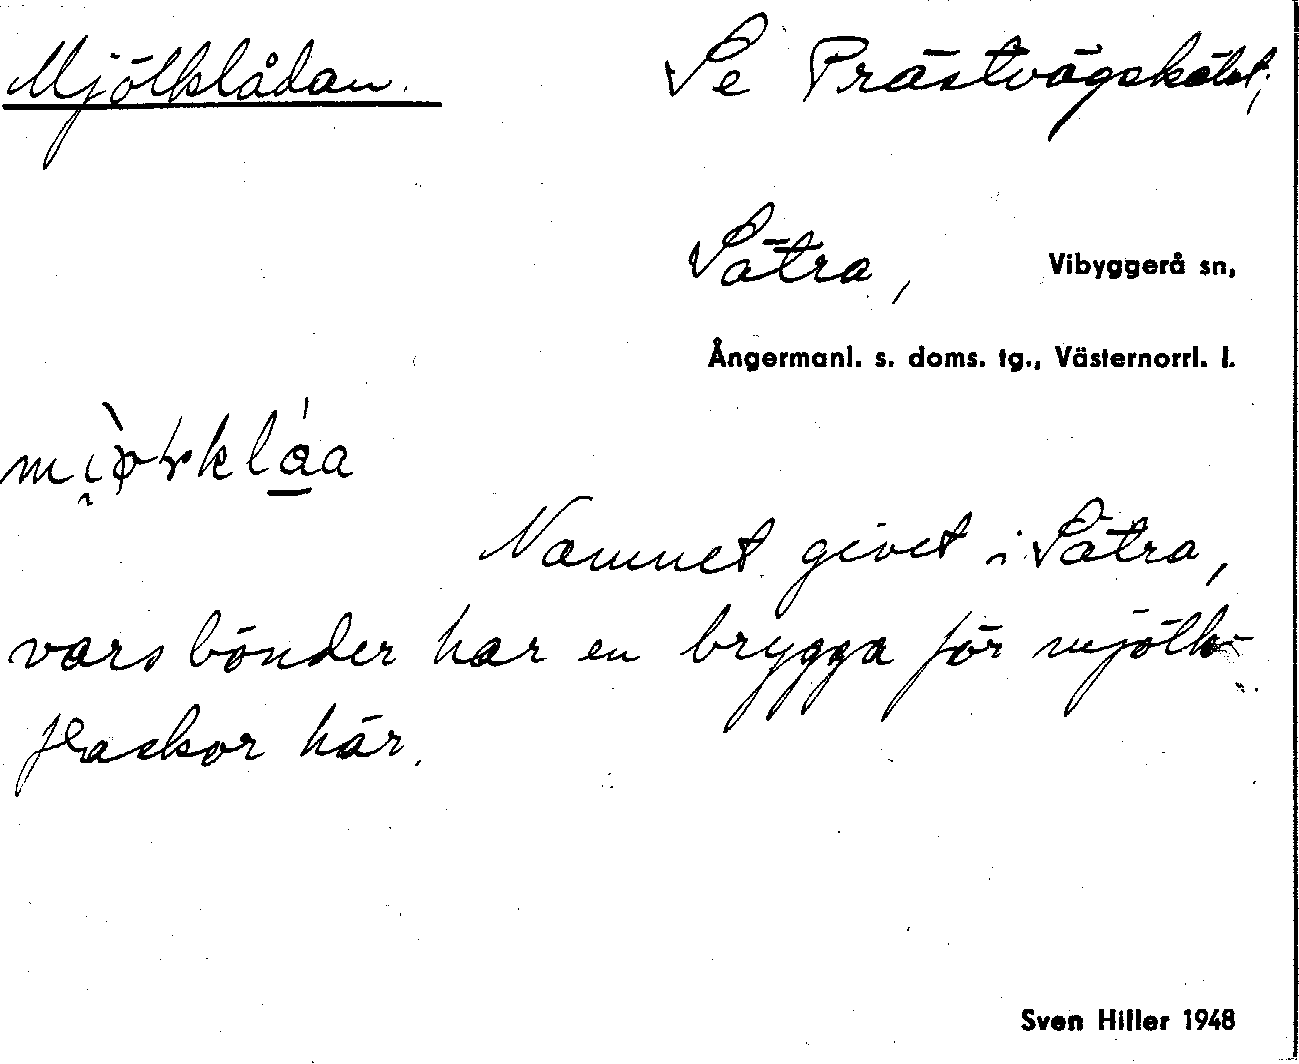 Mjölklådan. Se Prästvägskälet;
Sätra, Vibyggerå sn,
Ångermanl. s. doms. tg., Västernorrl. l.
Namnet givet i Sätra,
vars bönder har en brygga för mjölk-
flaskor här.
Sven Hiller 1948